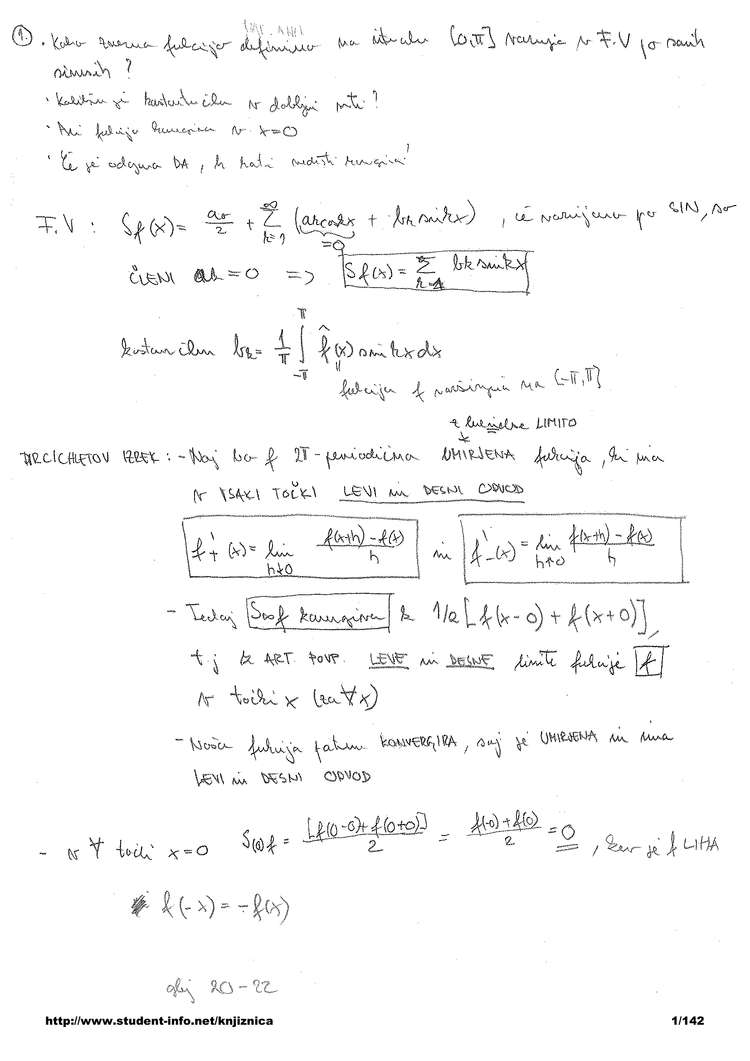 1. · Kako zvezna funkcijo definirano na intervalu [0,π] v F.V po samih
sinusih?
· Kolikšni je konstantni člen v dobljeni vrsti?
· Ali funkcija konvergira v x=0
· Če je odgovor DA, h kateri vrednosti konvergira?
F.V : Sf(x) = a0/2 + ∑_{k=1}^{∞} (ak cos kx + bk sin kx) , če razvijamo po SIN, so
=0
ČLENI ak = 0 => Sf(x) = ∑_{k=1}^{∞} bk sin kx
bk = 1/π ∫_{-π}^{π} f̂(x) sin kx dx
funkcija f razširjena na [-π,π]
LIMITO
IZREK : - Naj bo f 2π-periodična UMIRJENA funkcija, ki ima
v VSAKI TOČKI LEVI in DESNI ODVOD
f'+(x) = lim_{h↓0} f(x+h) - f(x) / h in f'-(x) = lim_{h↑0} f(x+h) - f(x) / h
- Tedaj konvergira k 1/2 [f(x-0) + f(x+0)],
t.j k ART. POVP. LEVE in DESNE limite funkcije f
v točki x (za ∀x)
- Naša funkcija KONVERGIRA, saj je UMIRJENA in ima
LEVI in DESNI ODVOD
- v ∀ točki x=0 S(0)f = [f(0-0)+f(0+0)] / 2 = f(-0)+f(0) / 2 = 0 , ker je f LIHA
f(-x) = -f(x)
glej 20-22
http://www.student-info.net/knjiznica 1/142